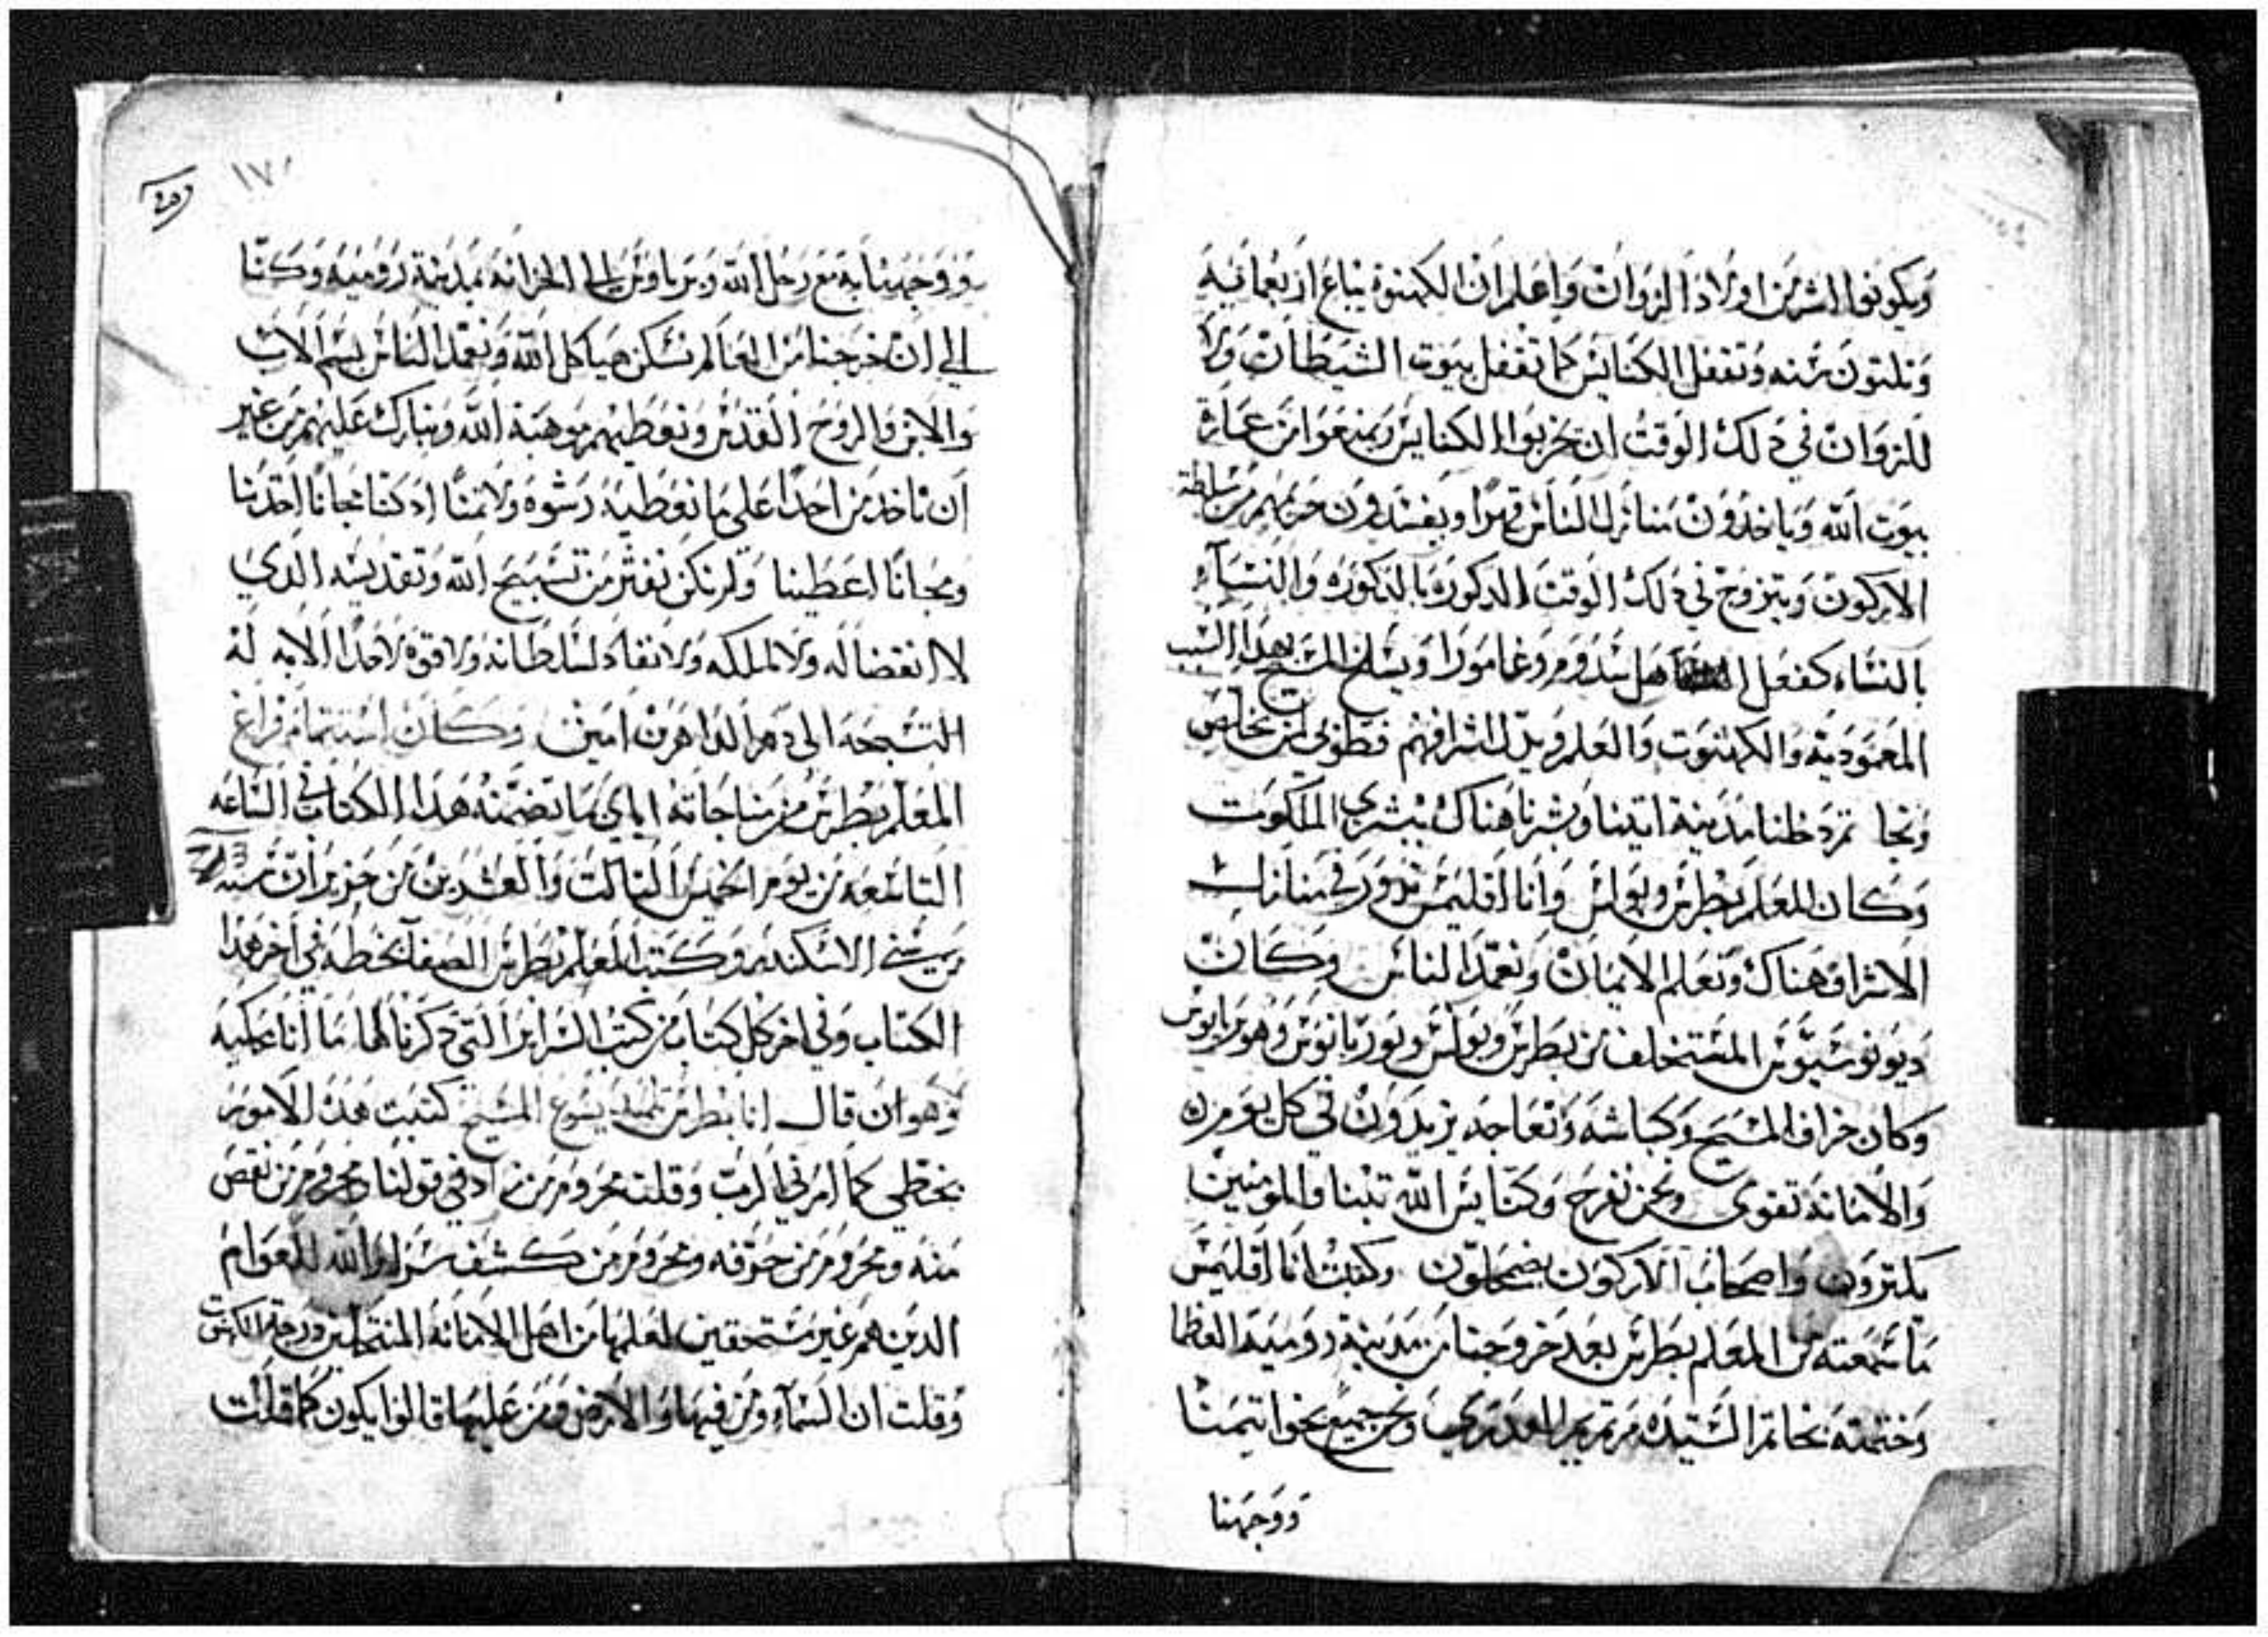 ويكونوا الشرين اولاد الزوات واعلم ان الكهنوة يباع اربعمايه
وثلثون سنه وتقفل الكنايس كما تقفل بيوت الشيطان ولا
للزوان في ذلك الوقت ان يخربوا الكنايس ويمنعوا من عمارة
بيوت الله وياخذون منازل الناس قهرا ويفسدون حريمهم من سلطة
الاركون ويتزوج في ذلك الوقت الذكوره بالذكوره والنساء
بالنساء كفعل اهل سدوم وغامورا ويسلخ المسيح بهذا السبب
المعموديه والكهنوت والعلم ويذل اشرافهم فطوبى لمن تخلص
ونجا ثم دخلنا مدينة اتينا وبشرنا هناك ببشرى الملكوت
وكان المعلم بطرس وبولس وانا اقليمس ندور في منازل
الاشراف هناك ونعلم الايمان ونعمد الناس وكان
ديونوسيوس المستخلف من بطرس وبولس
وكان خراف المسيح وكباشه ونعاجه يزيدون في كل يوم
والامانة تقوى ونحن نفرح وكنايس الله تبنا والمومنين
يكثرون واصحاب الاركون يضمحلون وكتبت انا اقليمس
ما سمعته من المعلم بطرس بعد خروجنا من مدينة روميه العظما
وختمته بخاتم السيده مرتمريم العدرى ونحن جميع بخواتيمنا
ووجهنا
١٧٠
ووجهنا به مع رجل الله الى الخزانه بمدينة روميه وكنا
الي ان خرجنا من العالم نسكن هياكل الله ونعمد الناس بسم الاب
والابن والروح القدس ونعطيهم موهبة الله ونبارك عليهم من غير
ان ناخد من احدا على ما نعطيه رشوه ولا ثمنا اد كنا مجانا اخدنا
ومجانا اعطينا ولم نكن نفتر من تسبيح الله وتقديسه الدي
لا انقضا له ولا لملكه ولا نفاد لسلطانه ولا قوة لاحدا الا به له
التسبحه الى دهر الداهرين امين وكان استتمام فراغ
المعلم بطرس من مناجاته اياي ما تضمنه هدا الكتاب في الساعه
التاسعه من يوم الخميس التالت والعشرين من حزيران سنه
من سني الاسكندر وكتب المعلم بطرس الصفا بخطه في اخر هدا
الكتاب وفي اخر كل كتاب من كتب السراير التي دكرناها ما انا حاكيه
وهو ان قال انا بطرس تلميد يسوع المسيح كتبت هده الامور
بخطي كما امرني الرب وقلت محروم من زاد في قولنا ومحروم من نقص
منه ومحروم من حرقه ومحروم من كشف سراير الله للعوام
الدين هم غير مستحقين لعلمها من اهل الامانه المنتحلين
وقلت ان السماء ومن فيها والارض ومن عليها قالوا يكون كما قلت